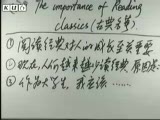 The importance of Reading
classics (古典文学)
① 阅读经典对人的成长至关重要
② 现在,人们越来越少读经典,原因是
③ 作为大学生,我应该……